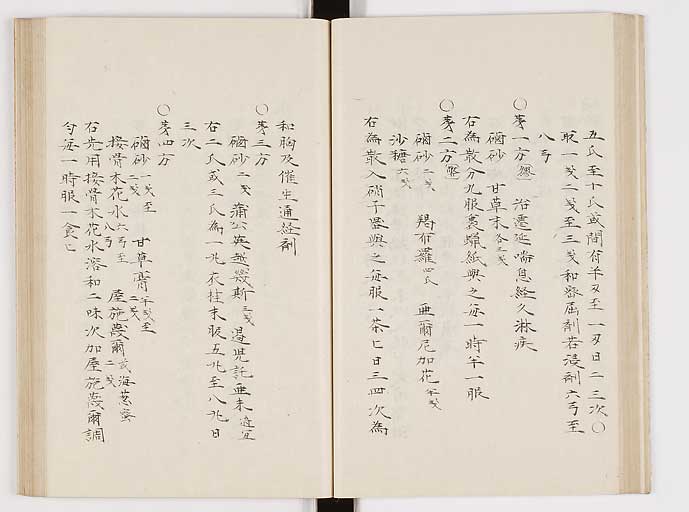 五氏至十氏或間有半刄至一刄日二三次〇
取一戔二戔至三戔和舐屈剤若浸剤六弓至
八弓
〇第一方 治遷延喘息経久淋疾
硇砂 甘草末各二戔
右為散分九服裹蝋紙與之毎一時半一服
〇第二方
硇砂二戔 羯布羅四氏 亜爾尼加花半戔
沙糖六戔
右為散入硝子器與之毎服一茶匕日三四次為
和胸及催生通経剤
〇第三方
硇砂二戔 蒲公英越幾斯三戔 遏児託亜末適宜
右二氏或三氏為一丸衣桂末服五丸至八丸日
三次
〇第四方
硇砂一戔至二戔 甘草膏半戔至二戔
接骨木花水六弓至八弓 屋施蔑爾或海葱蜜二戔
右先用接骨木花水溶和二味次加屋施蔑爾調
匀毎一時服一食匕